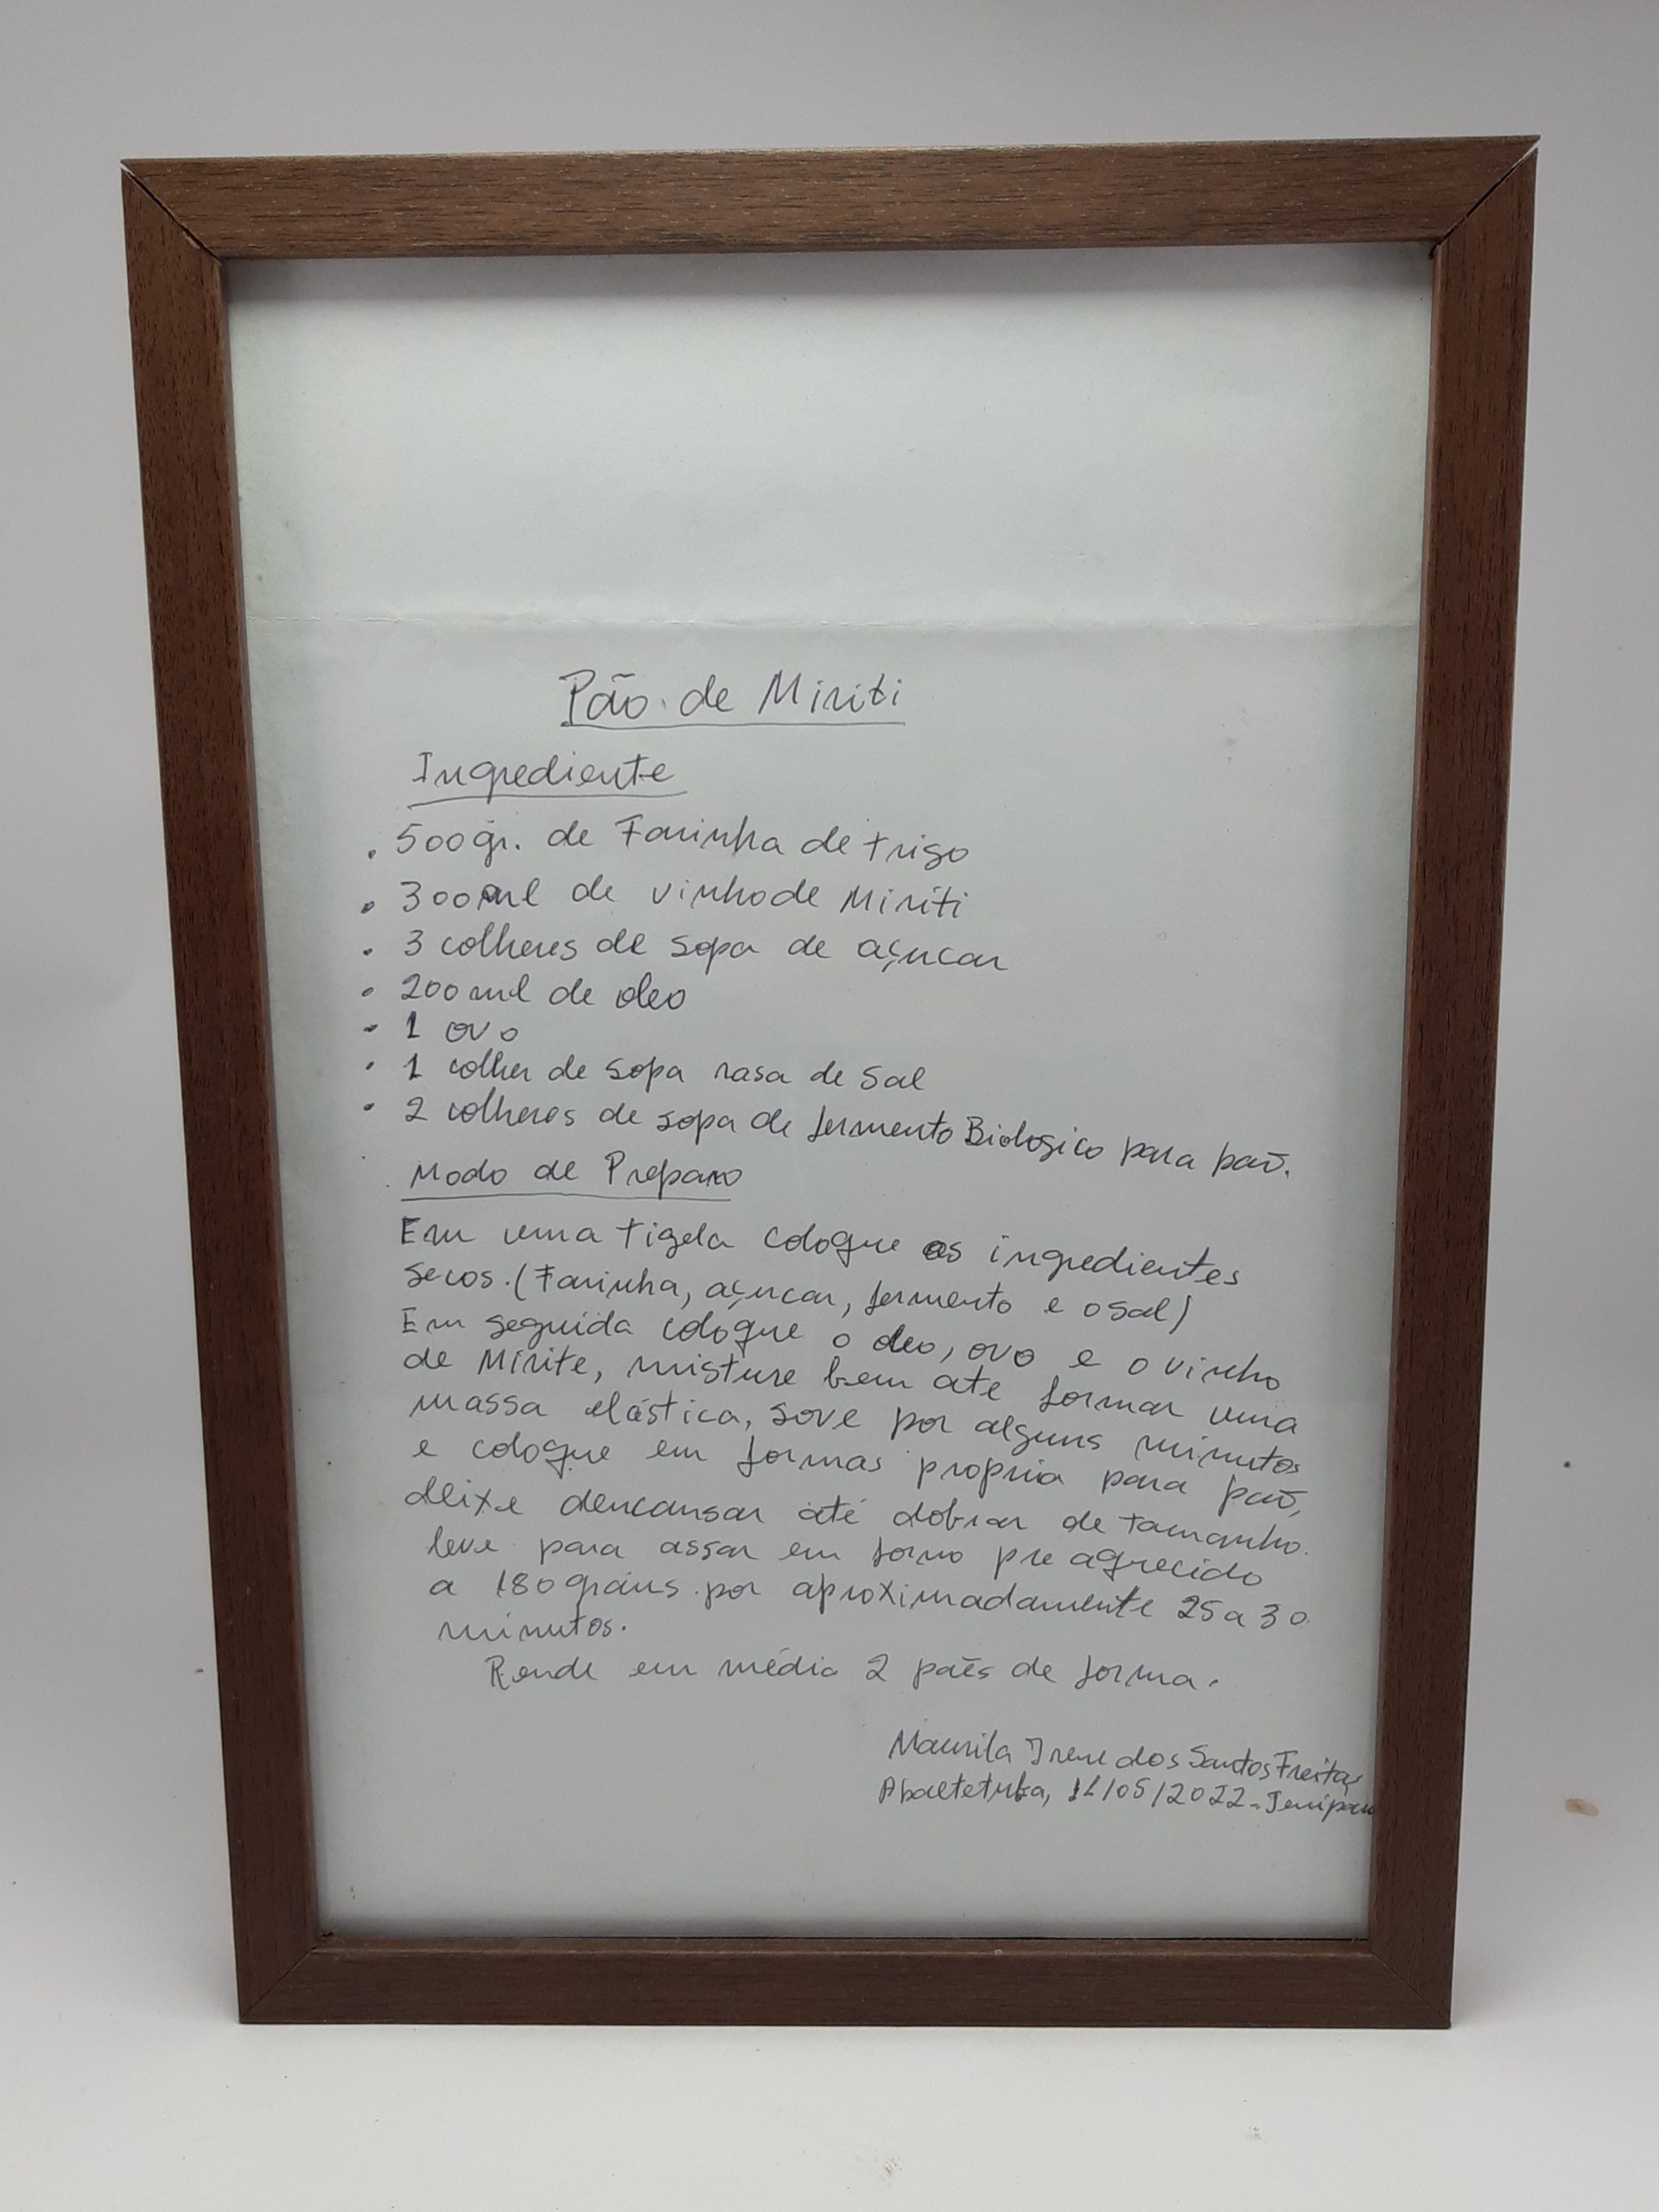 Pão de Miriti
Ingrediente
. 500gr. de Farinha de trigo
. 300ml de vinho de Miriti
. 3 colheres de sopa de açucar
. 200 ml de oleo
- 1 ovo
. 1 colher de sopa rasa de sal
- 2 colheres de sopa de fermento Biologico para paõ.
Modo de Preparo
Em uma tigela coloque os ingredientes
secos. (Farinha, açucar, fermento e o sal)
Em seguida coloque o oleo, ovo e o vinho
de Mirite, misture bem ate formar uma
massa elástica, sove por alguns minutos
e coloque em formas propria para paõ,
deixe dencansar até dobrar de tamanho.
leve para assar em forno pre aqrecido
a 180 graus por aproximadamente 25 a 30
minutos.
Rende em média 2 paẽs de forma.
Maurila Irene dos Santos Freitas
Abaetetuba, /05/2022 -